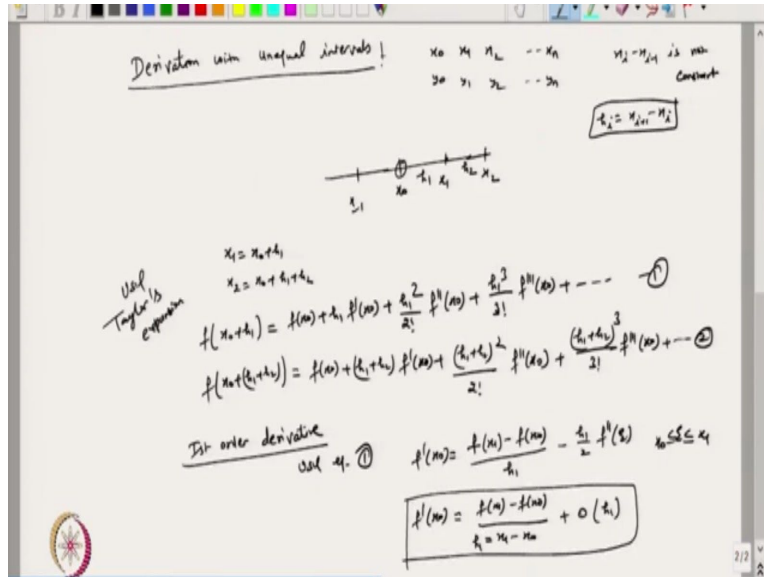 Derivation with unequal intervals! x0 x1 x2 --- xn xi - xi-1 is not
y0 y1 y2 --- yn constant
hi = xi+1 - xi
x-1 x0 h1 x1 h2 x2
x1 = x0 + h1
x2 = x0 + h1 + h2
Use Taylor's expansion
f(x0+h1) = f(x0) + h1 f'(x0) + h1²/2! f''(x0) + h1³/3! f'''(x0) + ---- ①
f(x0+(h1+h2)) = f(x0) + (h1+h2) f'(x0) + (h1+h2)²/2! f''(x0) + (h1+h2)³/3! f'''(x0) + --- ②
Ist order derivative
use eq. ① f'(x0) = (f(x1) - f(x0))/h1 - h1/2 f''(ξ) x0 ≤ ξ ≤ x1
f'(x0) = (f(x1) - f(x0))/(h1 = x1 - x0) + O(h1)
2/2